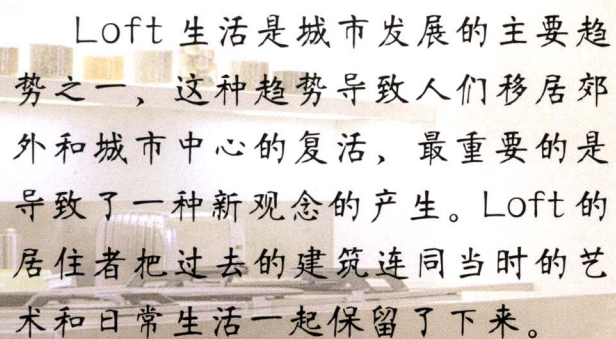 Loft 生活是城市发展的主要趋
势之一，这种趋势导致人们移居郊
外和城市中心的复活，最重要的是
导致了一种新观念的产生。Loft 的
居住者把过去的建筑连同当时的艺
术和日常生活一起保留了下来。